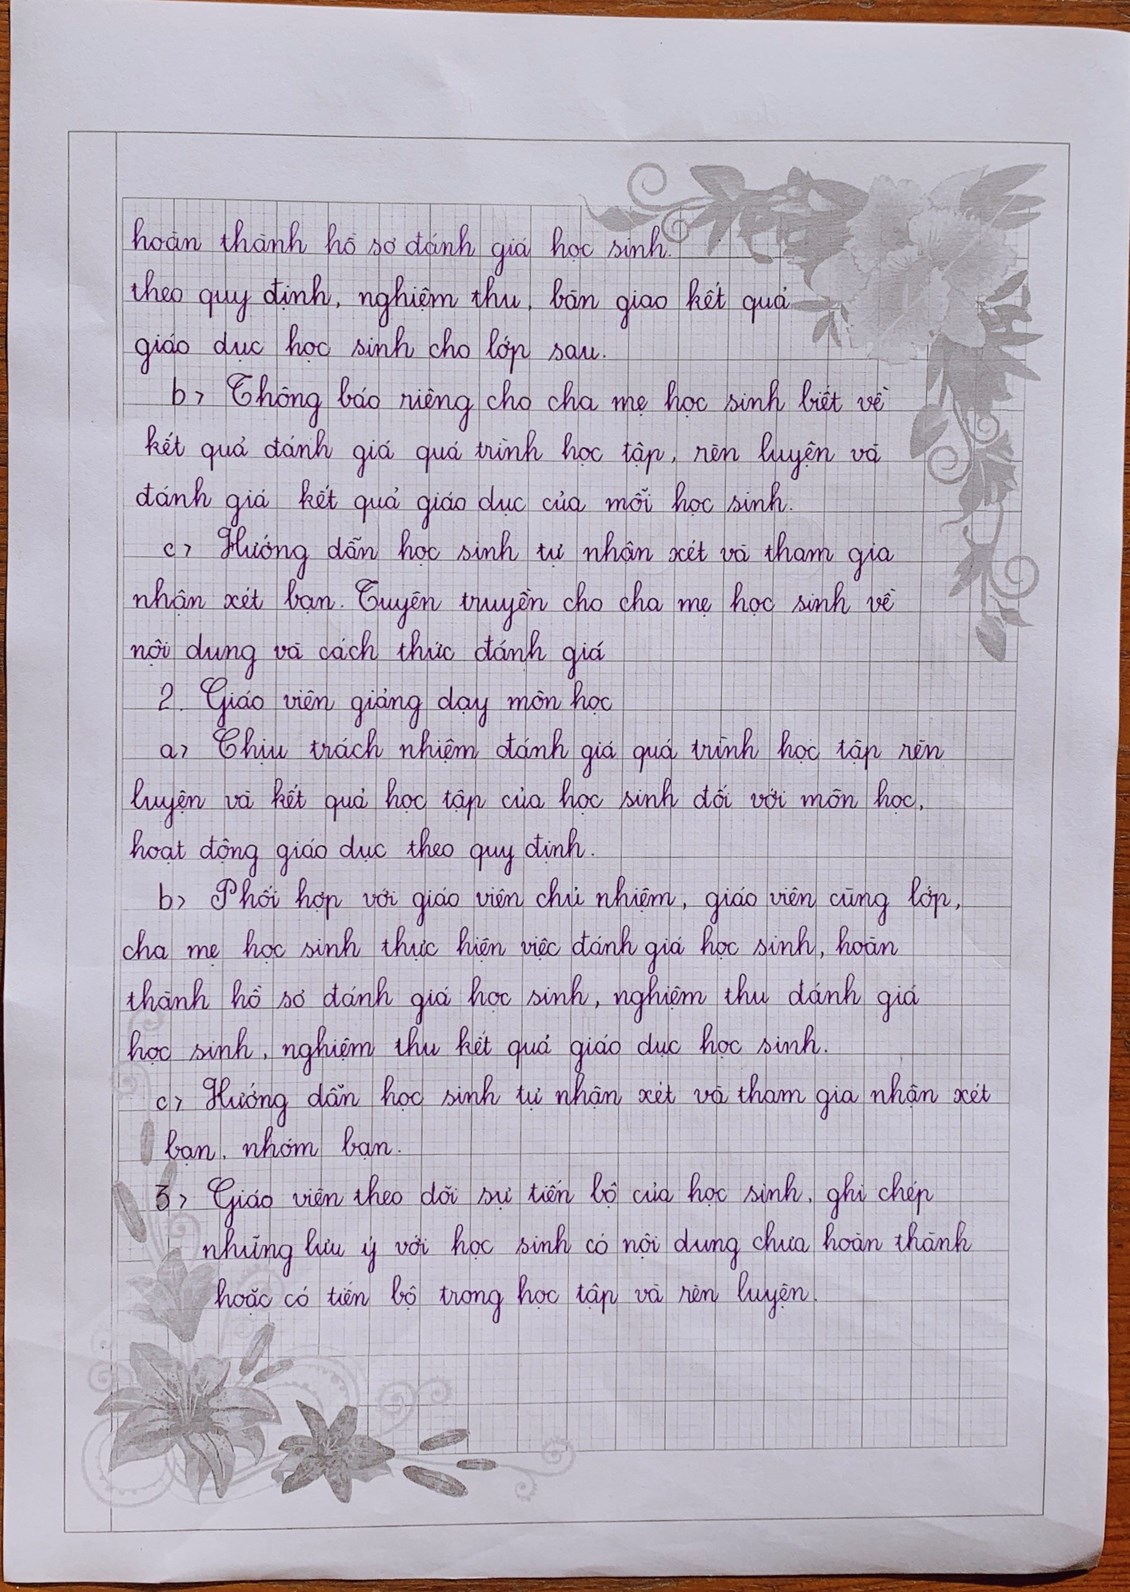 hoàn thành hồ sơ đánh giá học sinh.
theo quy định, nghiệm thu, bàn giao kết quả
giáo dục học sinh cho lớp sau.
b> Thông báo riêng cho cha mẹ học sinh biết về
kết quả đánh giá quá trình học tập, rèn luyện và
đánh giá kết quả giáo dục của mỗi học sinh.
c> Hướng dẫn học sinh tự nhận xét và tham gia
nhận xét bạn. Tuyên truyền cho cha mẹ học sinh về
nội dung và cách thức đánh giá
2. Giáo viên giảng dạy môn học
a> Chịu trách nhiệm đánh giá quá trình học tập rèn
luyện và kết quả học tập của học sinh đối với môn học,
hoạt động giáo dục theo quy định.
b> Phối hợp với giáo viên chủ nhiệm, giáo viên cùng lớp,
cha mẹ học sinh thực hiện việc đánh giá học sinh, hoàn
thành hồ sơ đánh giá học sinh, nghiệm thu đánh giá
học sinh, nghiệm thu kết quả giáo dục học sinh.
c> Hướng dẫn học sinh tự nhận xét và tham gia nhận xét
bạn, nhóm bạn.
3> Giáo viên theo dõi sự tiến bộ của học sinh, ghi chép
những lưu ý với học sinh có nội dung chưa hoàn thành
hoặc có tiến bộ trong học tập và rèn luyện.